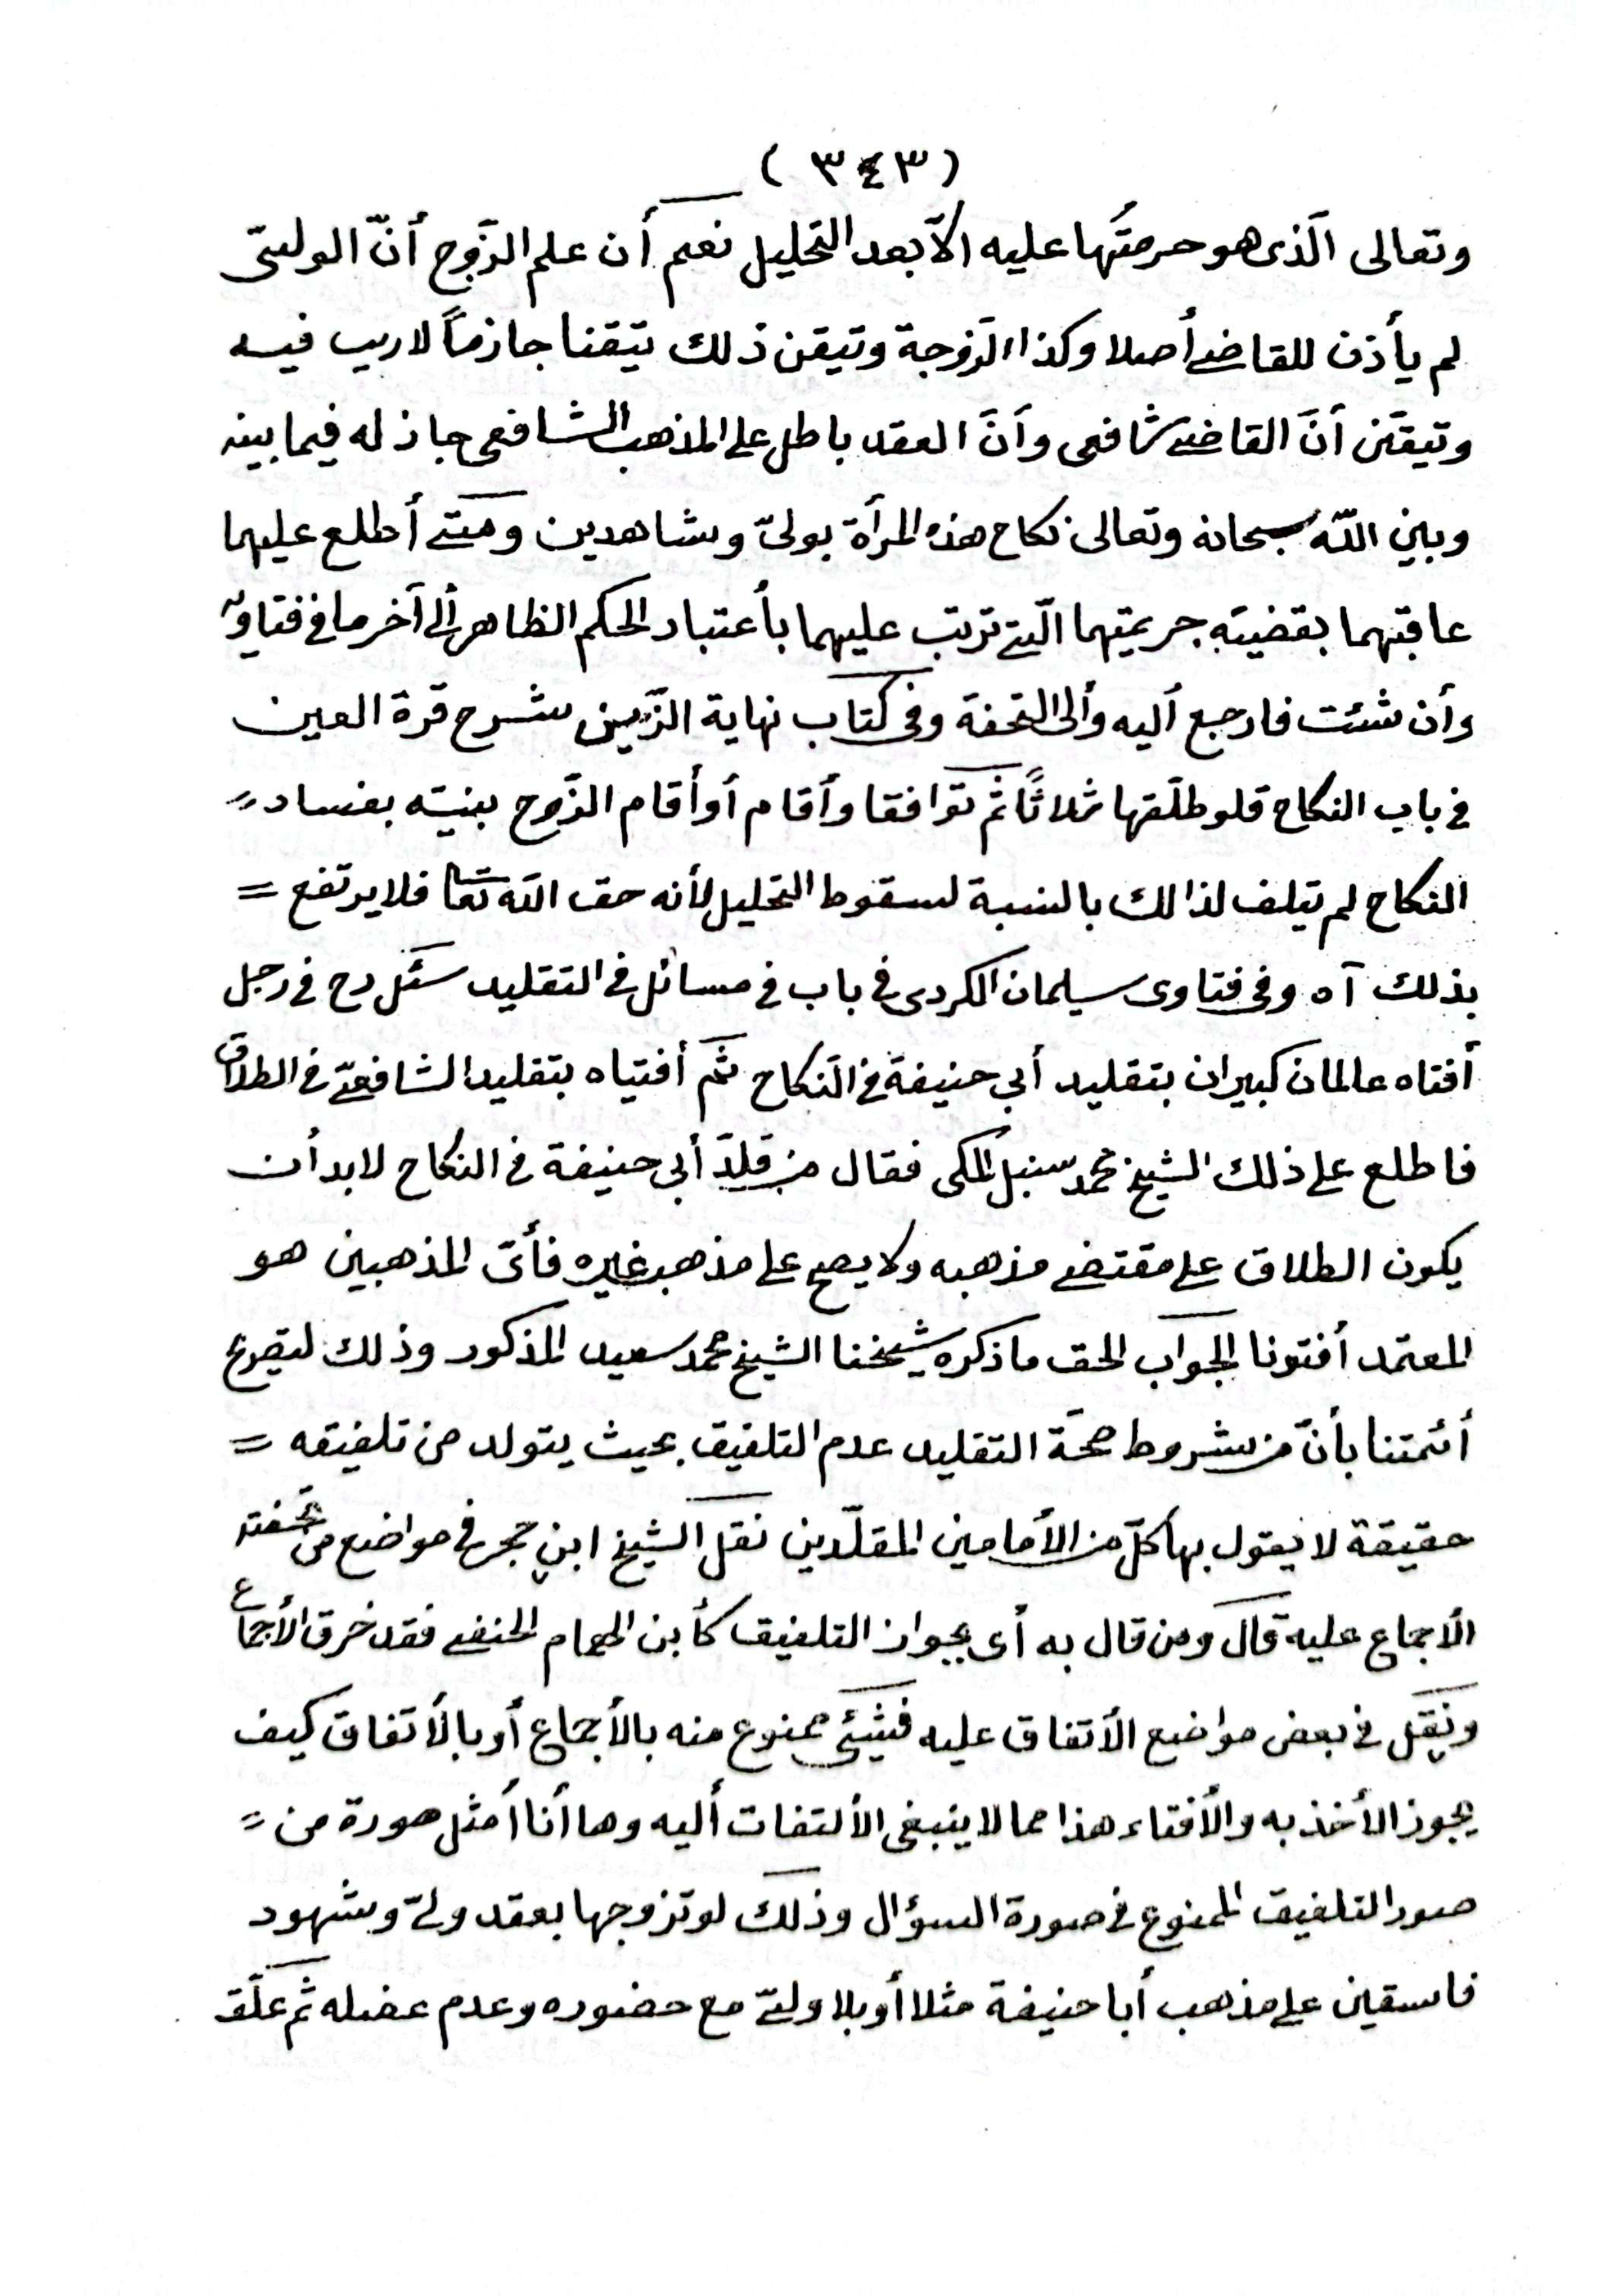 ( ٣٤٣ )
وتعالى الّذى هو حرمتُها عليه الاّ بعد التحليل نعم أن علم الزّوج أنّ الولىّ
لم يأذن للقاضى أصلا وكذا الزّوجة وتيقن ذلك تيقنا جازماً لا ريب فيه
وتيقّن أنّ القاضى شافعى وأنّ العقد باطل على المذهب الشافعى جاز له فيما بينه
وبين اللّه سبحانه وتعالى نكاح هذه المرأة بولىّ وشاهدين ومتى أطلع عليهما
عاقبتهما بقضيته جريمتهما الّتى ترتب عليهما بأعتبار الحكم الظاهر ألى آخر ما فى فتاويه
وأن شئت فارجع أليه وألى التحفة وفى كتاب نهاية الزّين شرح قرة العين
فى باب النكاح قلو طلّقها ثلاثاً ثم توافقا وأقام أو أقام الزّوج بينته بفساد =
النكاح لم يتلف لذالك بالنسبة لسقوط التحليل لأنه حق اللّه تعا فلا يرتفع =
بذلك آه وفى فتاوى سليمان الكردى فى باب فى مسائل فى التقليد سئل رح فى رجل
أفتاه عالمان كبيران بتقليد أبي حنيفة فى النّكاح ثم أفتياه بتقليد الشافعىّ فى الطلاق
فاطلع على ذلك الشيخ محمد سنبل المكى فقال من قلّد أبى حنيفة فى النكاح لابد أن
يكون الطلاق على مقتضى مذهبه ولا يصح على مذهب غيره فأىّ المذهبين هو
المعتمد أفتونا الجواب الحق ما ذكره شيخنا الشيخ محمد سعيد المذكور وذلك لتصريح
أئمتنا بأنّ من شروط صحّة التقليد عدم التلفيق بحيث يتولد من تلفيقه =
حقيقة لا يقول بها كلّ من الأمامين المقلّدين نقل الشيخ ابن حجر فى مواضع من تحفته
الأجماع عليه قال ومن قال به أى بجواز التلفيق كأبن الهمام الحنفى فقد خرق الأجماع
ونقل فى بعض مواضع الأتفاق عليه فشيئ ممنوع منه بالأجماع أو بالأتفاق كيف
يجوز الأخذ به والأفتاء هذا مما لا ينبغى الألتفات أليه وها أنا أمثل صورة من =
صور التلفيق الممنوع فى صورة السؤال وذلك لو تزوجها بعقد ولىّ وشهود
فاسقين على مذهب أبا حنيفة مثلا أو بلا ولىّ مع حضوره وعدم عضله ثم علّق